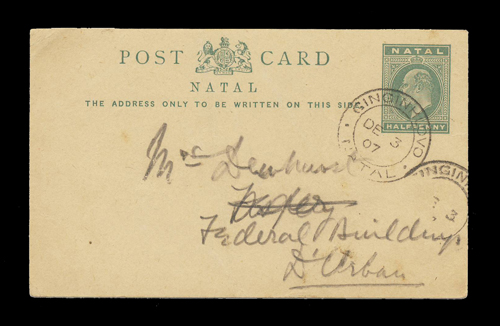 POST CARD
NATAL
THE ADDRESS ONLY TO BE WRITTEN ON THIS SIDE
NATAL
HALFPENNY
GINGINHLOVO
DE 3
07
NATAL
GINGINH
3
Mrs Dewhurst
Federal Buildings
D'Urban